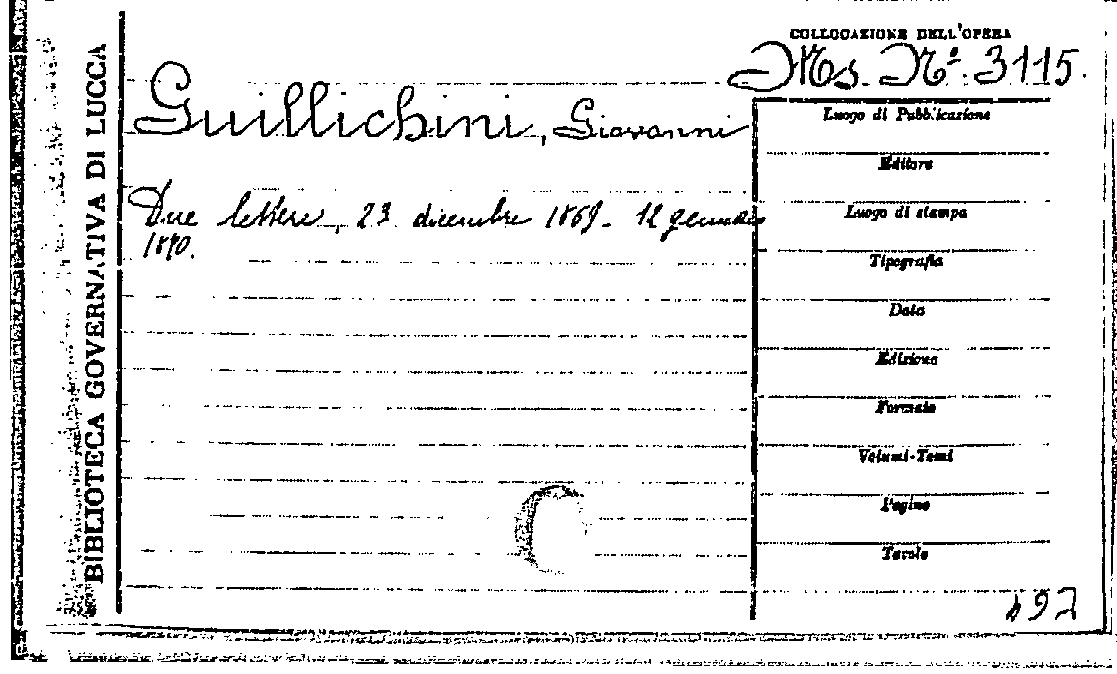 BIBLIOTECA GOVERNATIVA DI LUCCA
COLLOCAZIONE DELL'OPERA
Ms. Nº. 3115.
Guillichini, Giovanni
Due lettere, 23 dicembre 1869 - 12 gennaio
1870.
Luogo di Pubblicazione
Editore
Luogo di stampa
Tipografia
Data
Edizione
Formato
Volumi-Tomi
Pagine
Tavole